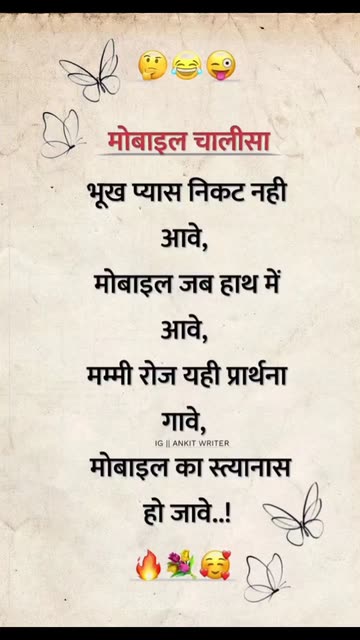 🤔😂😜
मोबाइल चालीसा
भूख प्यास निकट नही
आवे,
मोबाइल जब हाथ में
आवे,
मम्मी रोज यही प्रार्थना
गावे,
IG || ANKIT WRITER
मोबाइल का स्त्यानास
हो जावे..!
🔥💐🥰